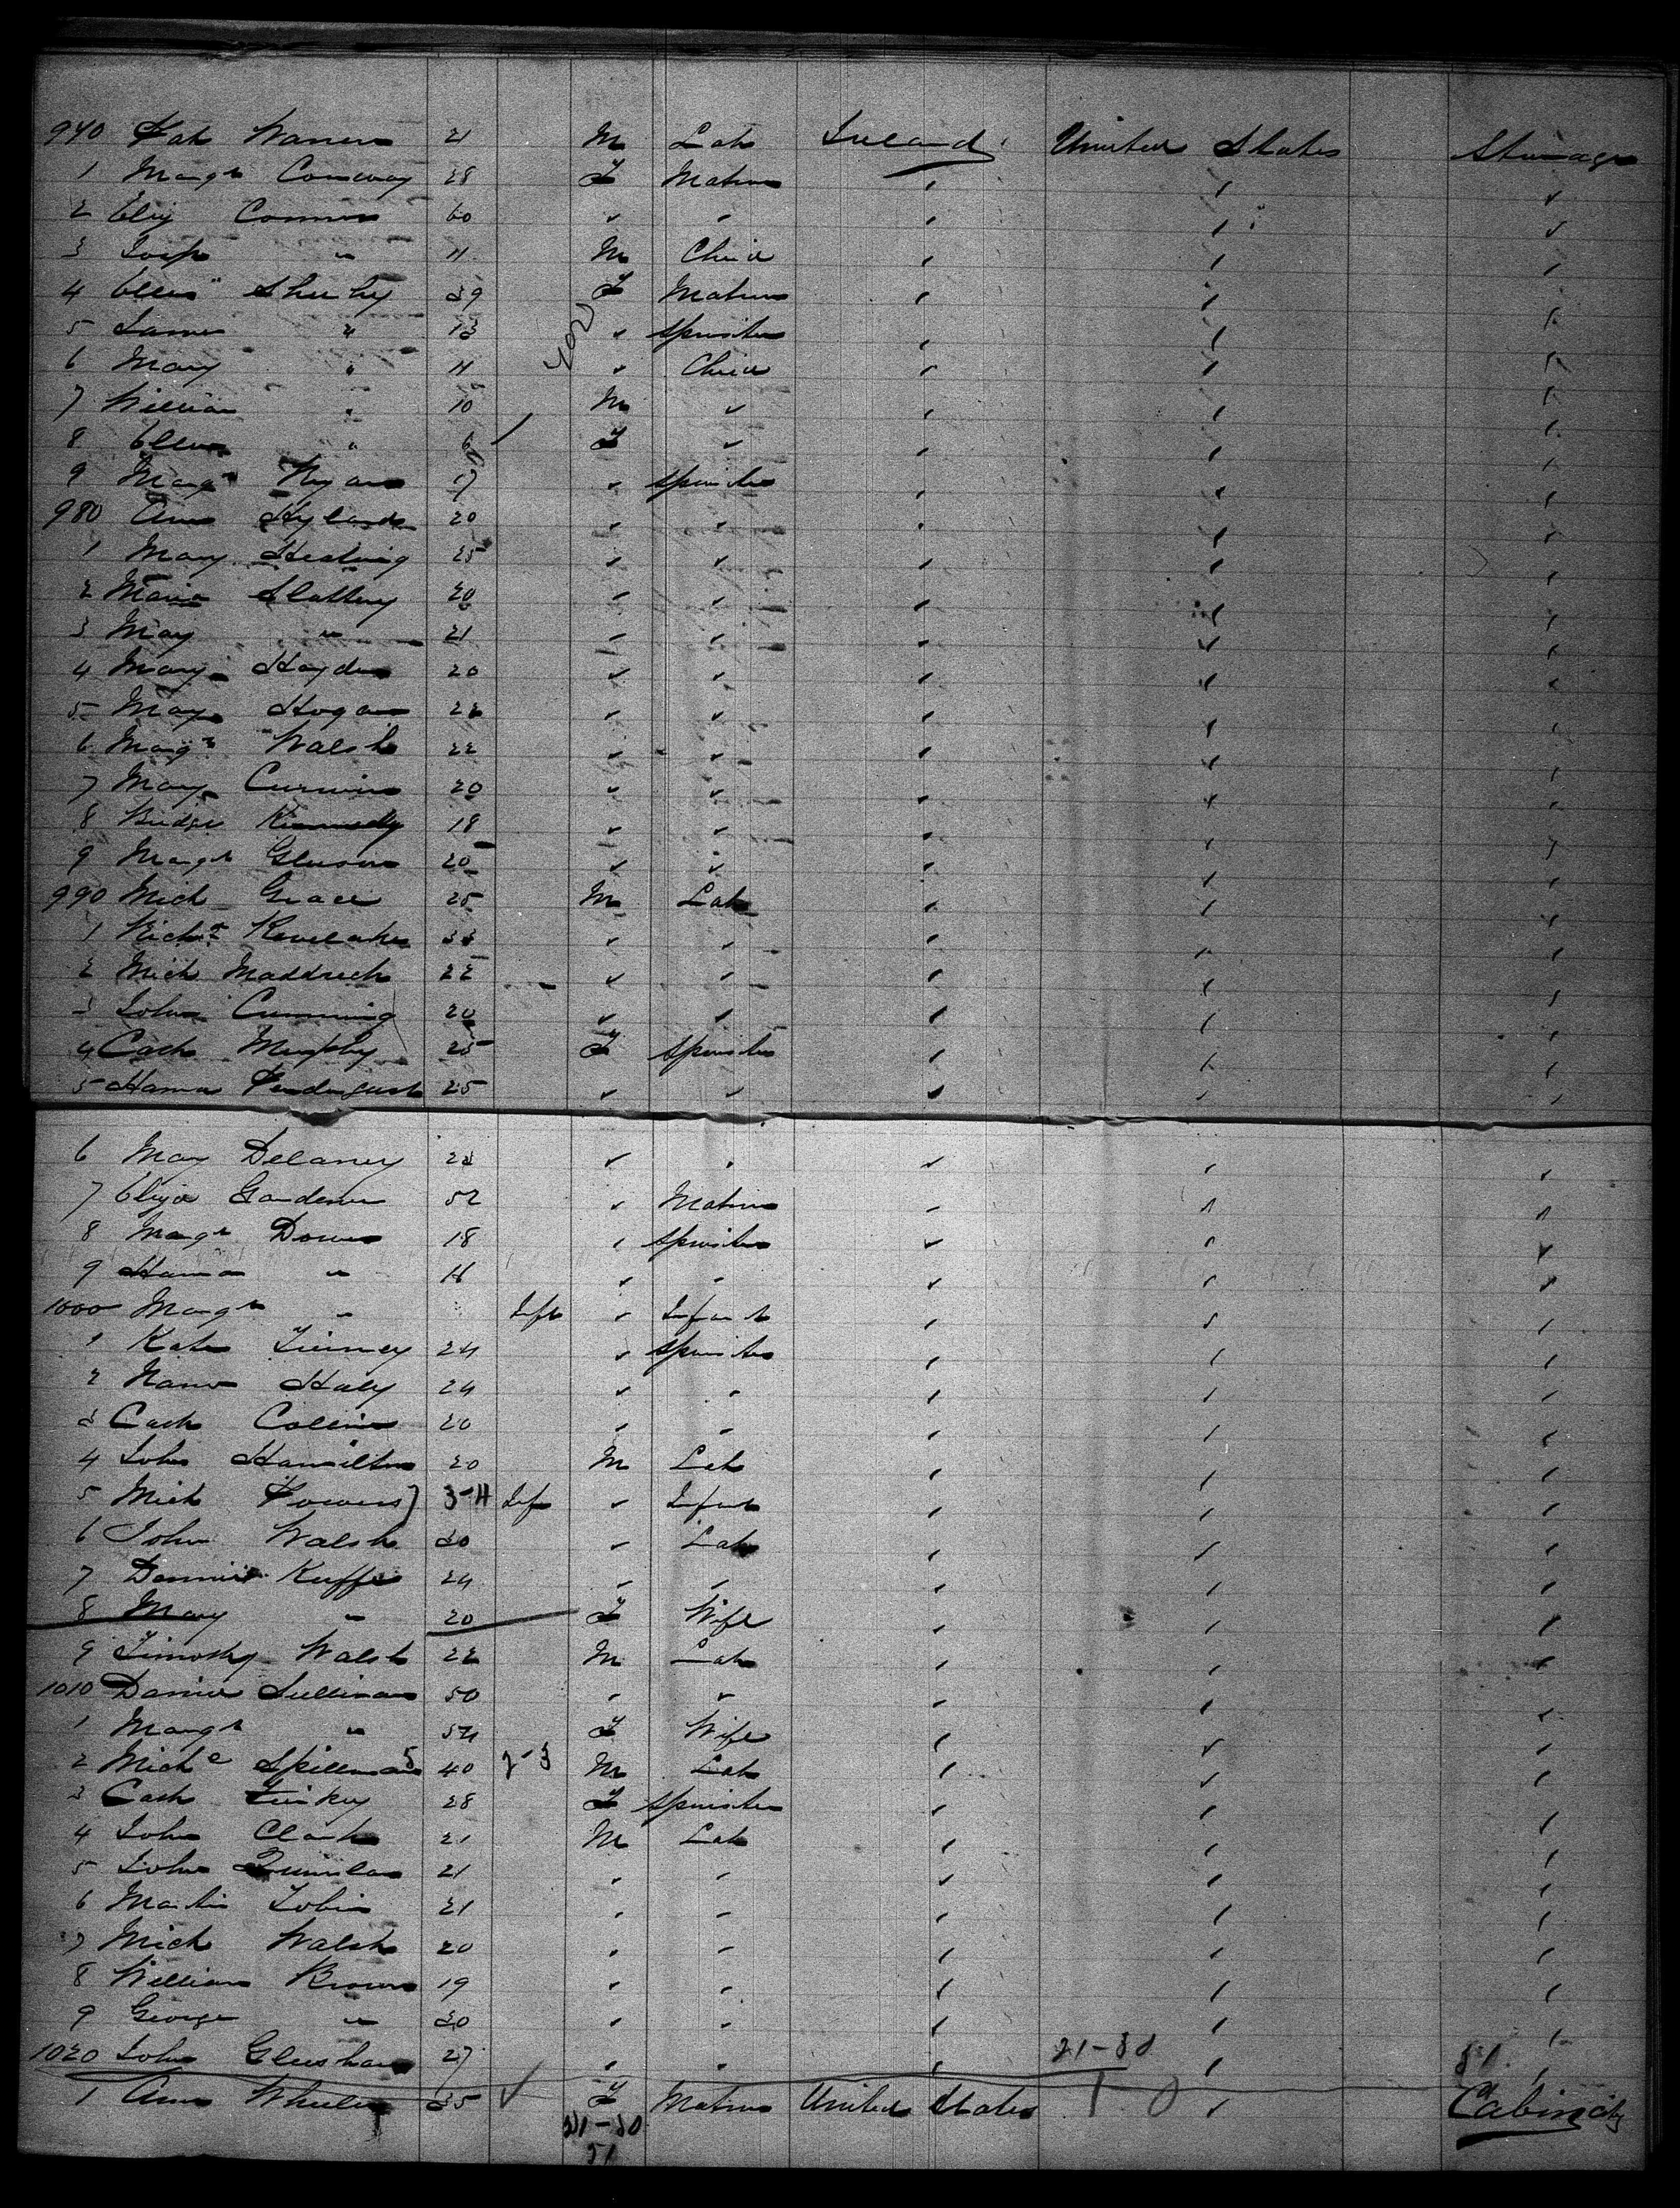 970 Pat Warren 21 M Lab Ireland United States Steerage
1 Margt Conway 28 F Matron " " "
2 Eliz Connor 60 " " " " "
3 " 11 M Child " " "
4 Ellen Sheehy 39 F Matron " " "
5 " 13 " Spinster " " "
6 Mary " 11 " Child " " "
7 William " 10 M " " " "
8 Ellen " 6 F " " " "
9 Margt Ryan 17 " Spinster " " "
980 Ann Hyland 20 " " " " "
1 Mary Keating 25 " " " " "
2 Maria Slattery 20 " " " " "
3 Mary " 21 " " " " "
4 Mary Hayden 20 " " " " "
5 Mary Hogan 22 " " " " "
6 Margt Walsh 22 " " " " "
7 Mary 20 " " " " "
8 Bridget Kennedy 18 " " " " "
9 Margt Gleeson 20 " " " " "
990 Mich Grace 25 M Lab " " "
1 Richd 33 " " " " "
2 Mich Maddrick 22 " " " " "
3 John Cumming 20 " " " " "
4 Cath Murphy 25 F Spinster " " "
5 Hanna Pendergast 25 " " " " "
6 Mary Delaney 23 " " " " "
7 Eliza Gardener 52 " Matron " " "
8 Margt 18 " Spinster " " "
9 Hanna " 11 " " " " "
1000 Margt " Inft " Infant " " "
1 Kate Tierney 24 " Spinster " " "
2 Haley 24 " " " " "
3 Cath Collins 20 " " " " "
4 John Hamilton 20 M Lab " " "
5 Mich Powers 3-11 Inf " Infant " " "
6 John Walsh 30 " Lab " " "
7 Dennis Keeffe 24 " " " " "
8 Mary " 20 F Wife " " "
9 Timothy Walsh 22 M Lab " " "
1010 Daniel Sullivan 50 " " " " "
1 Margt " 54 F Wife " " "
2 Michl 40 M Lab " " "
3 Cath 28 F Spinster " " "
4 John Clark 21 M Lab " " "
5 John Quinlan 21 " " " " "
6 Martin Tobin 21 " " " " "
7 Mich Walsh 20 " " " " "
8 William Brown 19 " " " " "
9 George " 20 " " " " "
1020 John 27 " " " 21-30 " 51 "
1 Ann Wheeler 35 F Matron United States " Cabin
21-30
51